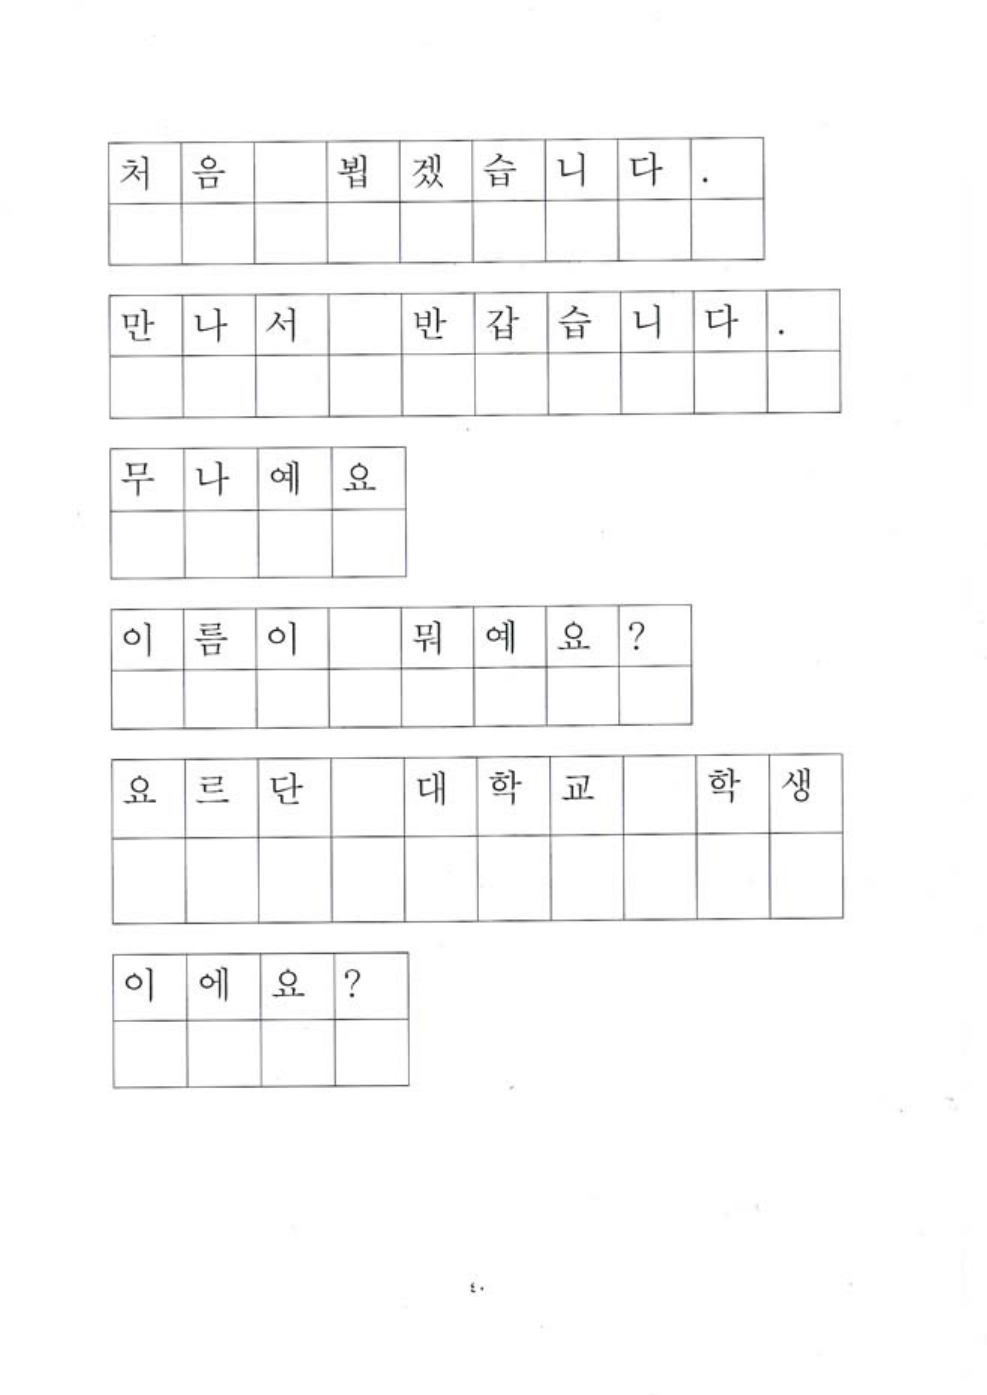 처음 뵙겠습니다.
만나서 반갑습니다.
무나예요
이름이 뭐예요?
요르단 대학교 학생
이에요?
٤٠